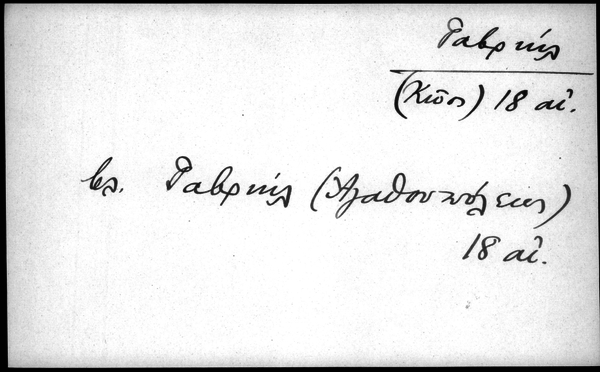 Γαβριήλ
(Κίος) 18 αἰ.
βλ. Γαβριήλ (Ἀγαθουπόλεως)
18 αἰ.